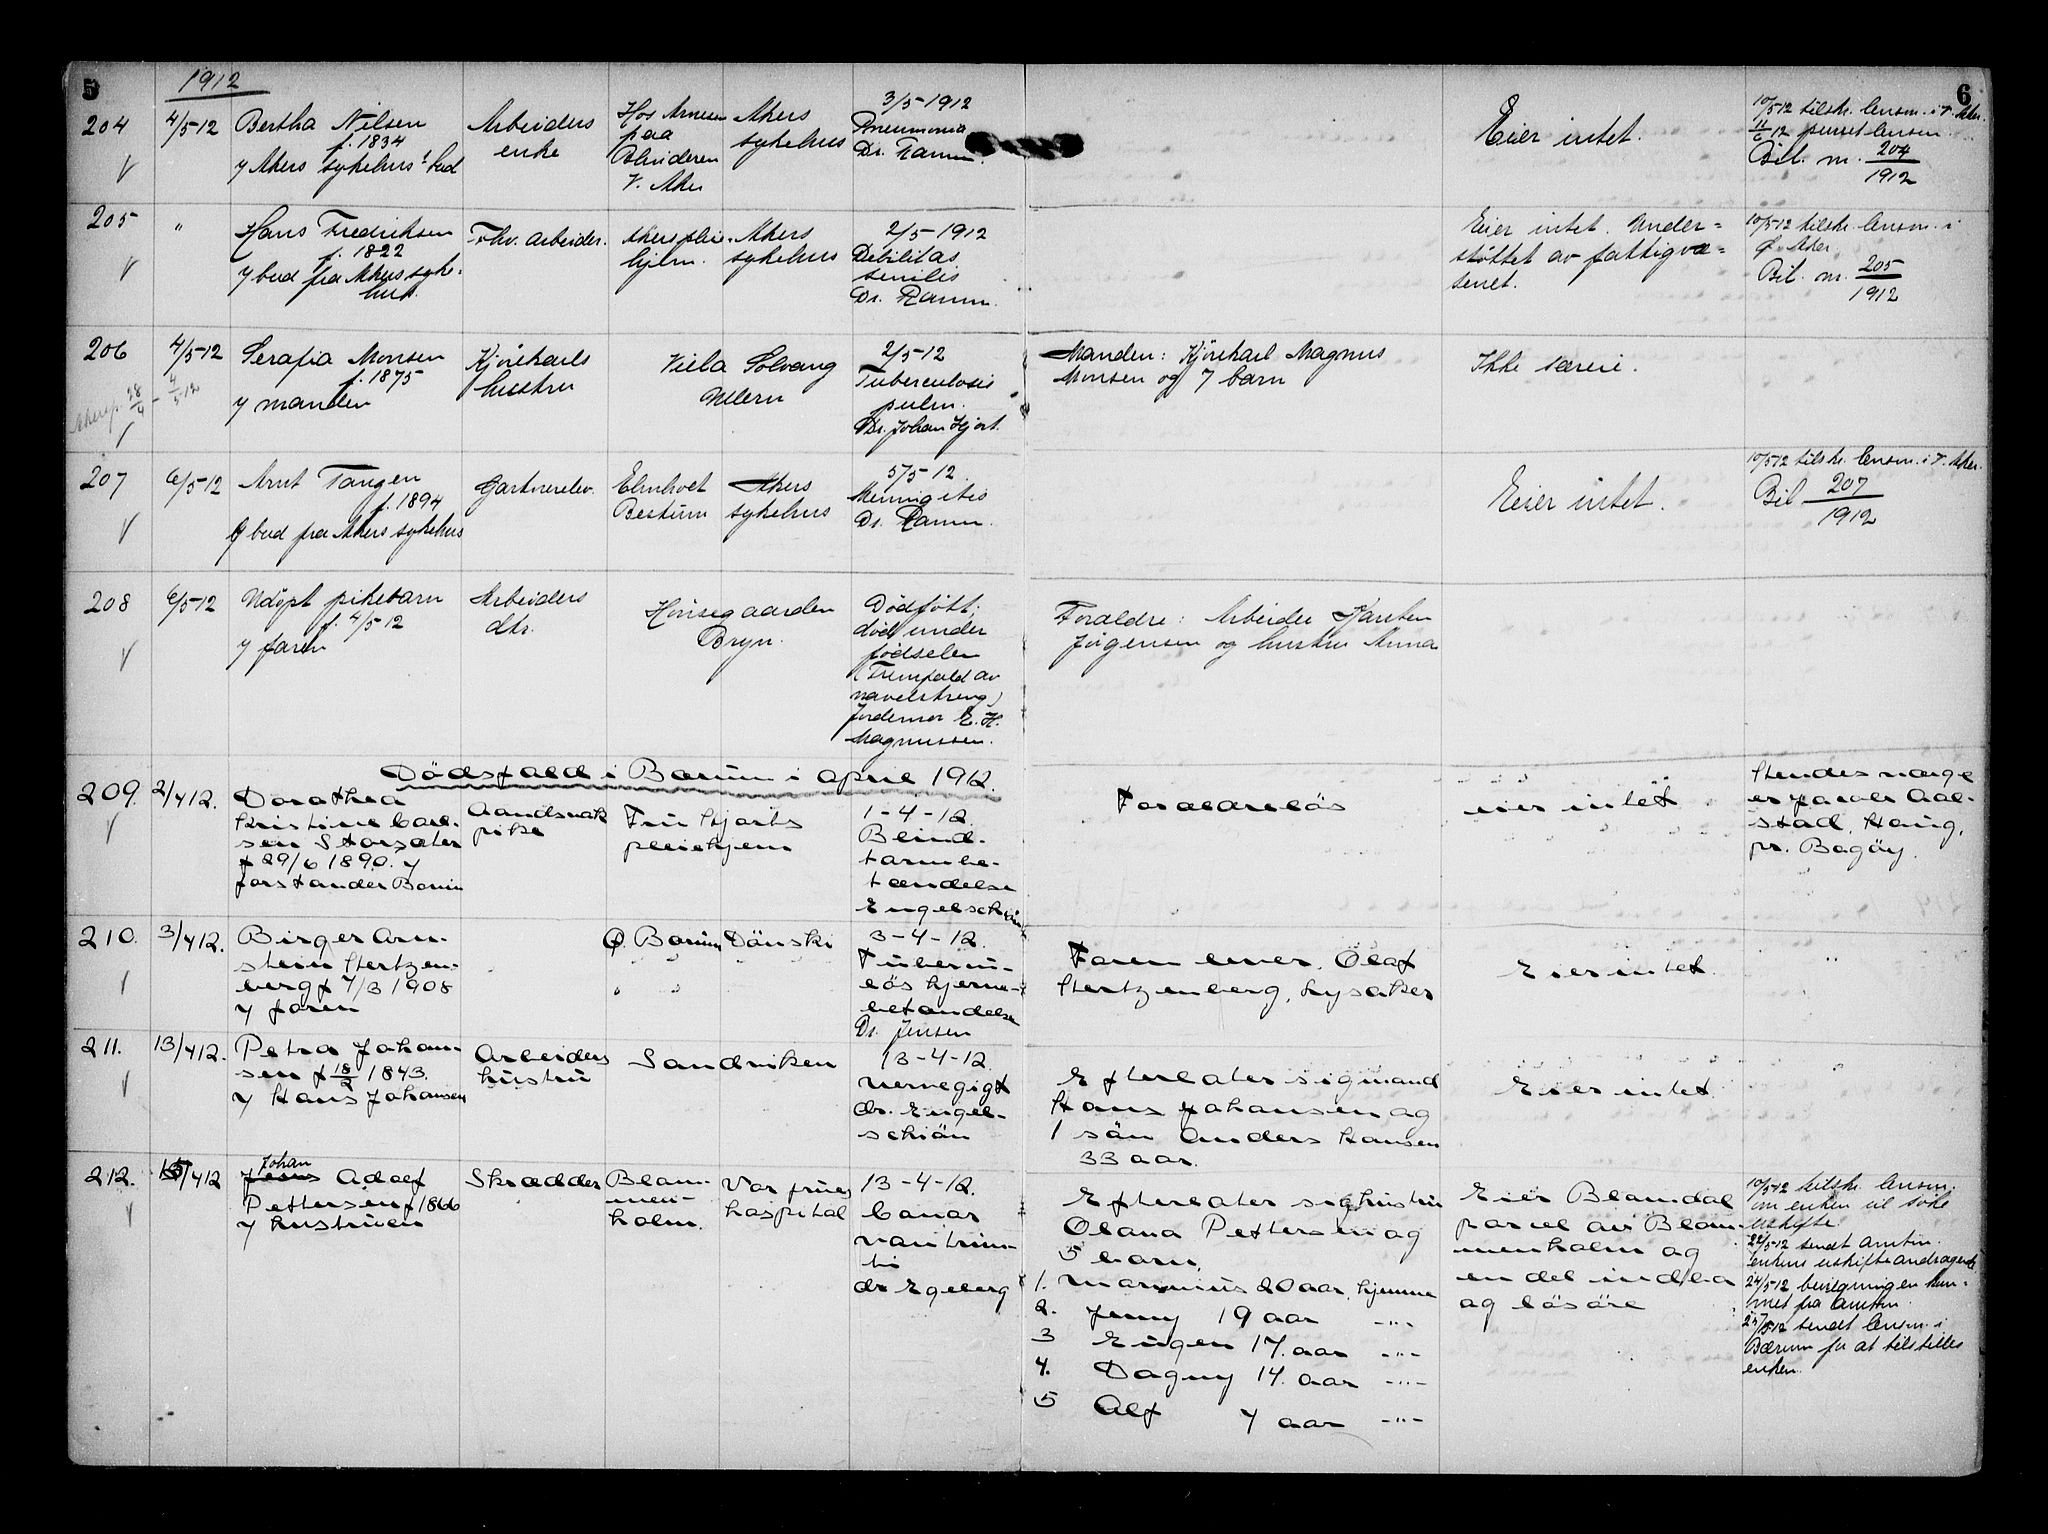 5
6
1912
204
4/5-12
Bertha Nilsen
f. 1834
v/ Akers sykehus' bud
Arbeiders
enke
Hos Arnesen
paa
Blinderen
V. Aker
Akers
sykehus
3/5-1912
Pneumonia
Dr. Ramm.
Eier intet.
10/5-12 tilskr. lensm. i V. Aker.
11/6 12 purret lensm.
Bil. nr. 204/1912
205
"
Hans Fredriksen
f. 1822
v/ bud fra Akers syke-
hus.
Fhv. arbeider.
Akers pleie-
hjem.
Akers
sykehus
2/5-1912
Debilitas
senilis
Dr. Ramm.
Eier intet. Under-
støttet av fattigvæ-
senet.
10/5-12 tilskr. lensm. i
Ø. Aker.
Bil. nr. 205/1912
206
4/5-12
Akersp. 28/4 - 4/5 12
Serafia Monsen
f. 1875
v/ manden
Kjørekarls
hustru
Villa Solvang
Ullern
2/5-12
Tuberculosis
pulm.
Dr. Johan Hjort.
Manden: Kjørekarl Magnus
Monsen og 7 barn
Ikke særeie.
207
6/5-12
Arnt Tangen
f. 1894
v/ bud fra Akers sykehus
Gartnerelev.
Elmhoet
Bestum
Akers
sykehus
5/5-12.
Meningitis
Dr. Ramm.
Eier intet.
10/5-12 tilskr. lensm. i V. Aker.
Bil 207/1912
208
6/5-12
Udøpt pikebarn
f. 4/5-12
v/ faren
Arbeiders
dtr.
Hønsegaarden
Bryn.
Dødfött;
död under
fødselen
(Fremfald av
navelstreng)
Jordemor E. H.
Magnussen.
Foraldre: Arbeider Karsten
Jørgensen og hustru Anna
Dødsfald i Bærum i april 1912.
209.
2/4 12.
Dorothea
Kristine Carl-
sen Storsæter
f 29/6 1890. v/
forstander Bærum
Aandssvak
pike
Fru Hjorts
pleiehjem
1-4-12.
Blind-
tarmbe-
tændelse
Engelschiøn
Forældreløs
eier intet
Hendes værge
er Jacob Aal-
stad, Haug,
pr. Bagøy.
210.
3/4 12.
Birger Arn-
stein Hertzen-
berg f 7/3 1908
v/ faren
Ø. Bærum
" "
Dönski
3-4-12.
Tuberku-
løs hjerne-
betændelse
Dr. Jensen
Faren lever. Olaf
Hertzenberg, Lysaker
Eier intet.
"
211.
13/4 12.
Petra Johan-
sen f 18/2 1843.
v/ Hans Johansen
Arbeiders
hustru
Sandviken
13-4-12.
nervegigt
dr. Engel-
schiön
Efterlater sig mand
Hans Johansen og
1 sön Anders Hansen
33 aar.
Eier intet.
"
212.
15/4 12
Johan
Jens Adolf
Pettersen f 1866
v/ hustruen
Skrædder
Blom-
men-
holm.
Vor frues
hospital
13-4-12.
dr Egeberg
Efterlater sig hustru
Olava Pettersen og
5 barn.
1. Marinius 20 aar, hjemme
2. Jenny 19 aar -"-
3 Eugen 17. aar -"-
4. Dagny 14. aar -"-
5 Alf 7 aar -"-
Eier Blomdal
parcel av Blom-
menholm og
en del indbo
og løsøre
10/5-12 tilskr. lensm.
om enken vil söke
uskifte.
22/5-12 sendt Amtm.
enkens uskifteandragende
24/5-12 bevilgningen kom-
met fra Amtm.
24/5-12 sendt lensm. i
Bærum for at tilstilles
enken.